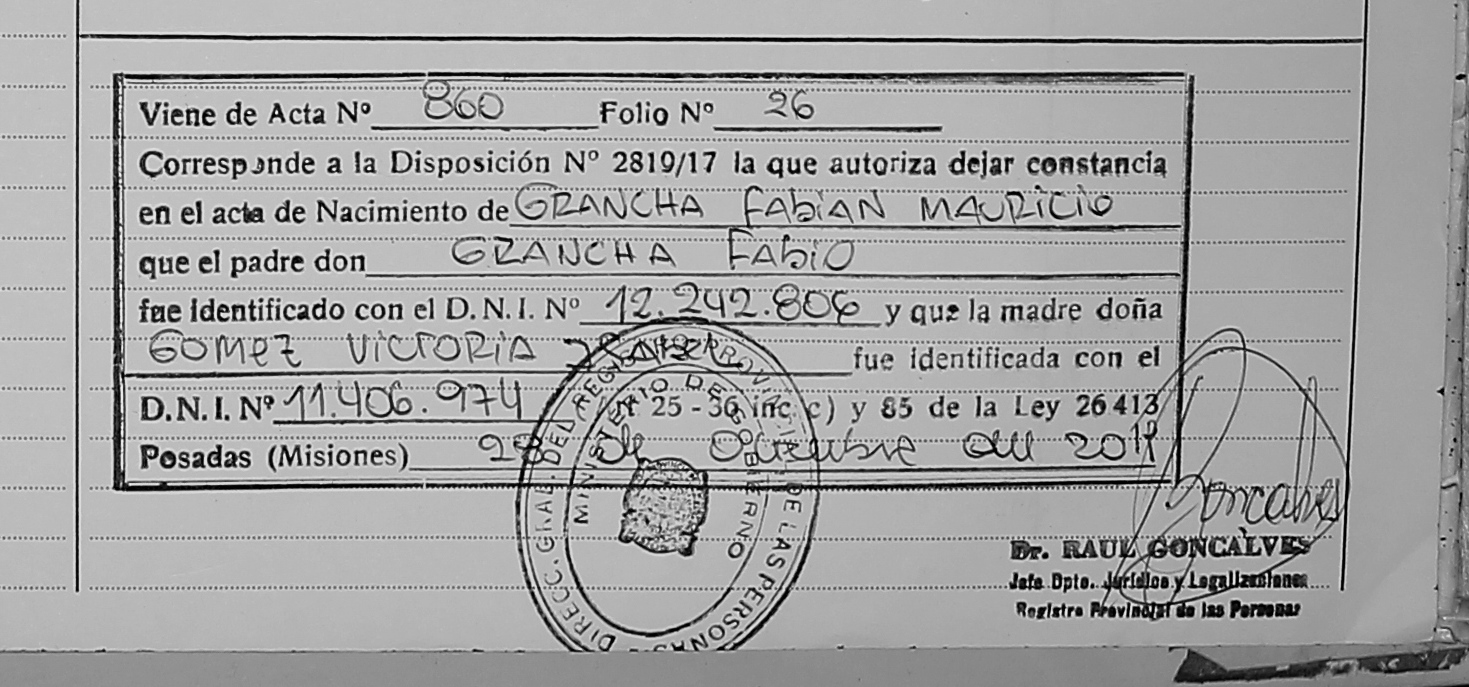 Viene de Acta Nº 860 Folio Nº 26
Corresponde a la Disposición Nº 2819/17 la que autoriza dejar constancia
en el acta de Nacimiento de GRANCHA FABIAN MAURICIO
que el padre don GRANCHA FABIO
fue identificado con el D.N.I. Nº 12.242.806 y que la madre doña
GOMEZ VICTORIA fue identificada con el
D.N.I. Nº 11.406.974 25 - 36 inc. c) y 85 de la Ley 26413
Posadas (Misiones) 28 de Octubre del
DIRECC. GRAL. DEL REGISTRO PROVINCIAL DE LAS PERSONAS
MINISTERIO DE GOBIERNO
Goncalves
Dr. RAUL GONCALVES
Jefe Dpto. Jurídico y Legalizaciones
Registro Provincial de las Personas